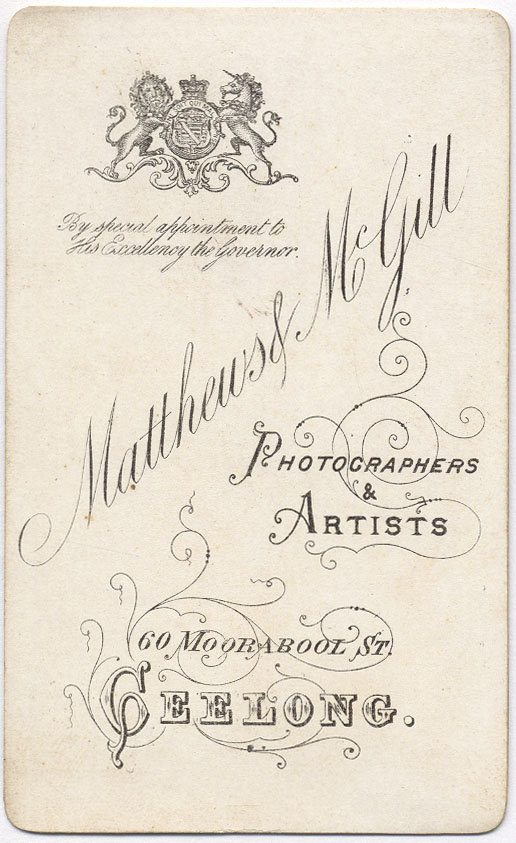 By special appointment to
His Excellency the Governor.
Matthews & McGill
PHOTOGRAPHERS
&
ARTISTS
60 MOORABOOL ST.
GEELONG.